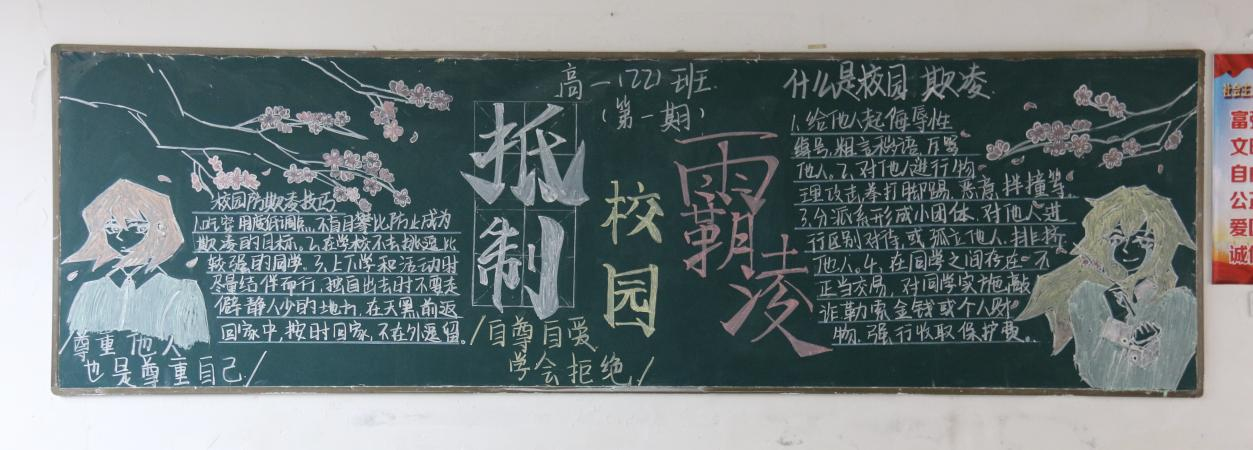 高一(22)班
(第一期)
抵制
校园
霸凌
/自尊自爱
学会拒绝/
校园防欺凌技巧
1.吃穿用度 不盲目攀比防止成为
欺凌的目标。2.在学校不去挑逗比
较强的同学。3.上下学和活动时
尽量结伴而行,独自出去时不要走
僻静人少的地方,在天黑前返
回家中,按时回家,不在外逗留。
/尊重他人
也是尊重自己/
什么是校园欺凌
1.给他人起侮辱性
绰号,粗言秽语 斥骂
他人。2.对他人进行物
理攻击,拳打脚踢、恶意 撞等
3.分派系形成小团体.对他人进
行区别对待,或孤立他人.排挤
他人。4.在同学之间存在 不
正当交易,对同学实施敲
诈勒索金钱或个人财
物.强行收取保护费。
社会主
富强
文明
自由
公正
爱国
诚信